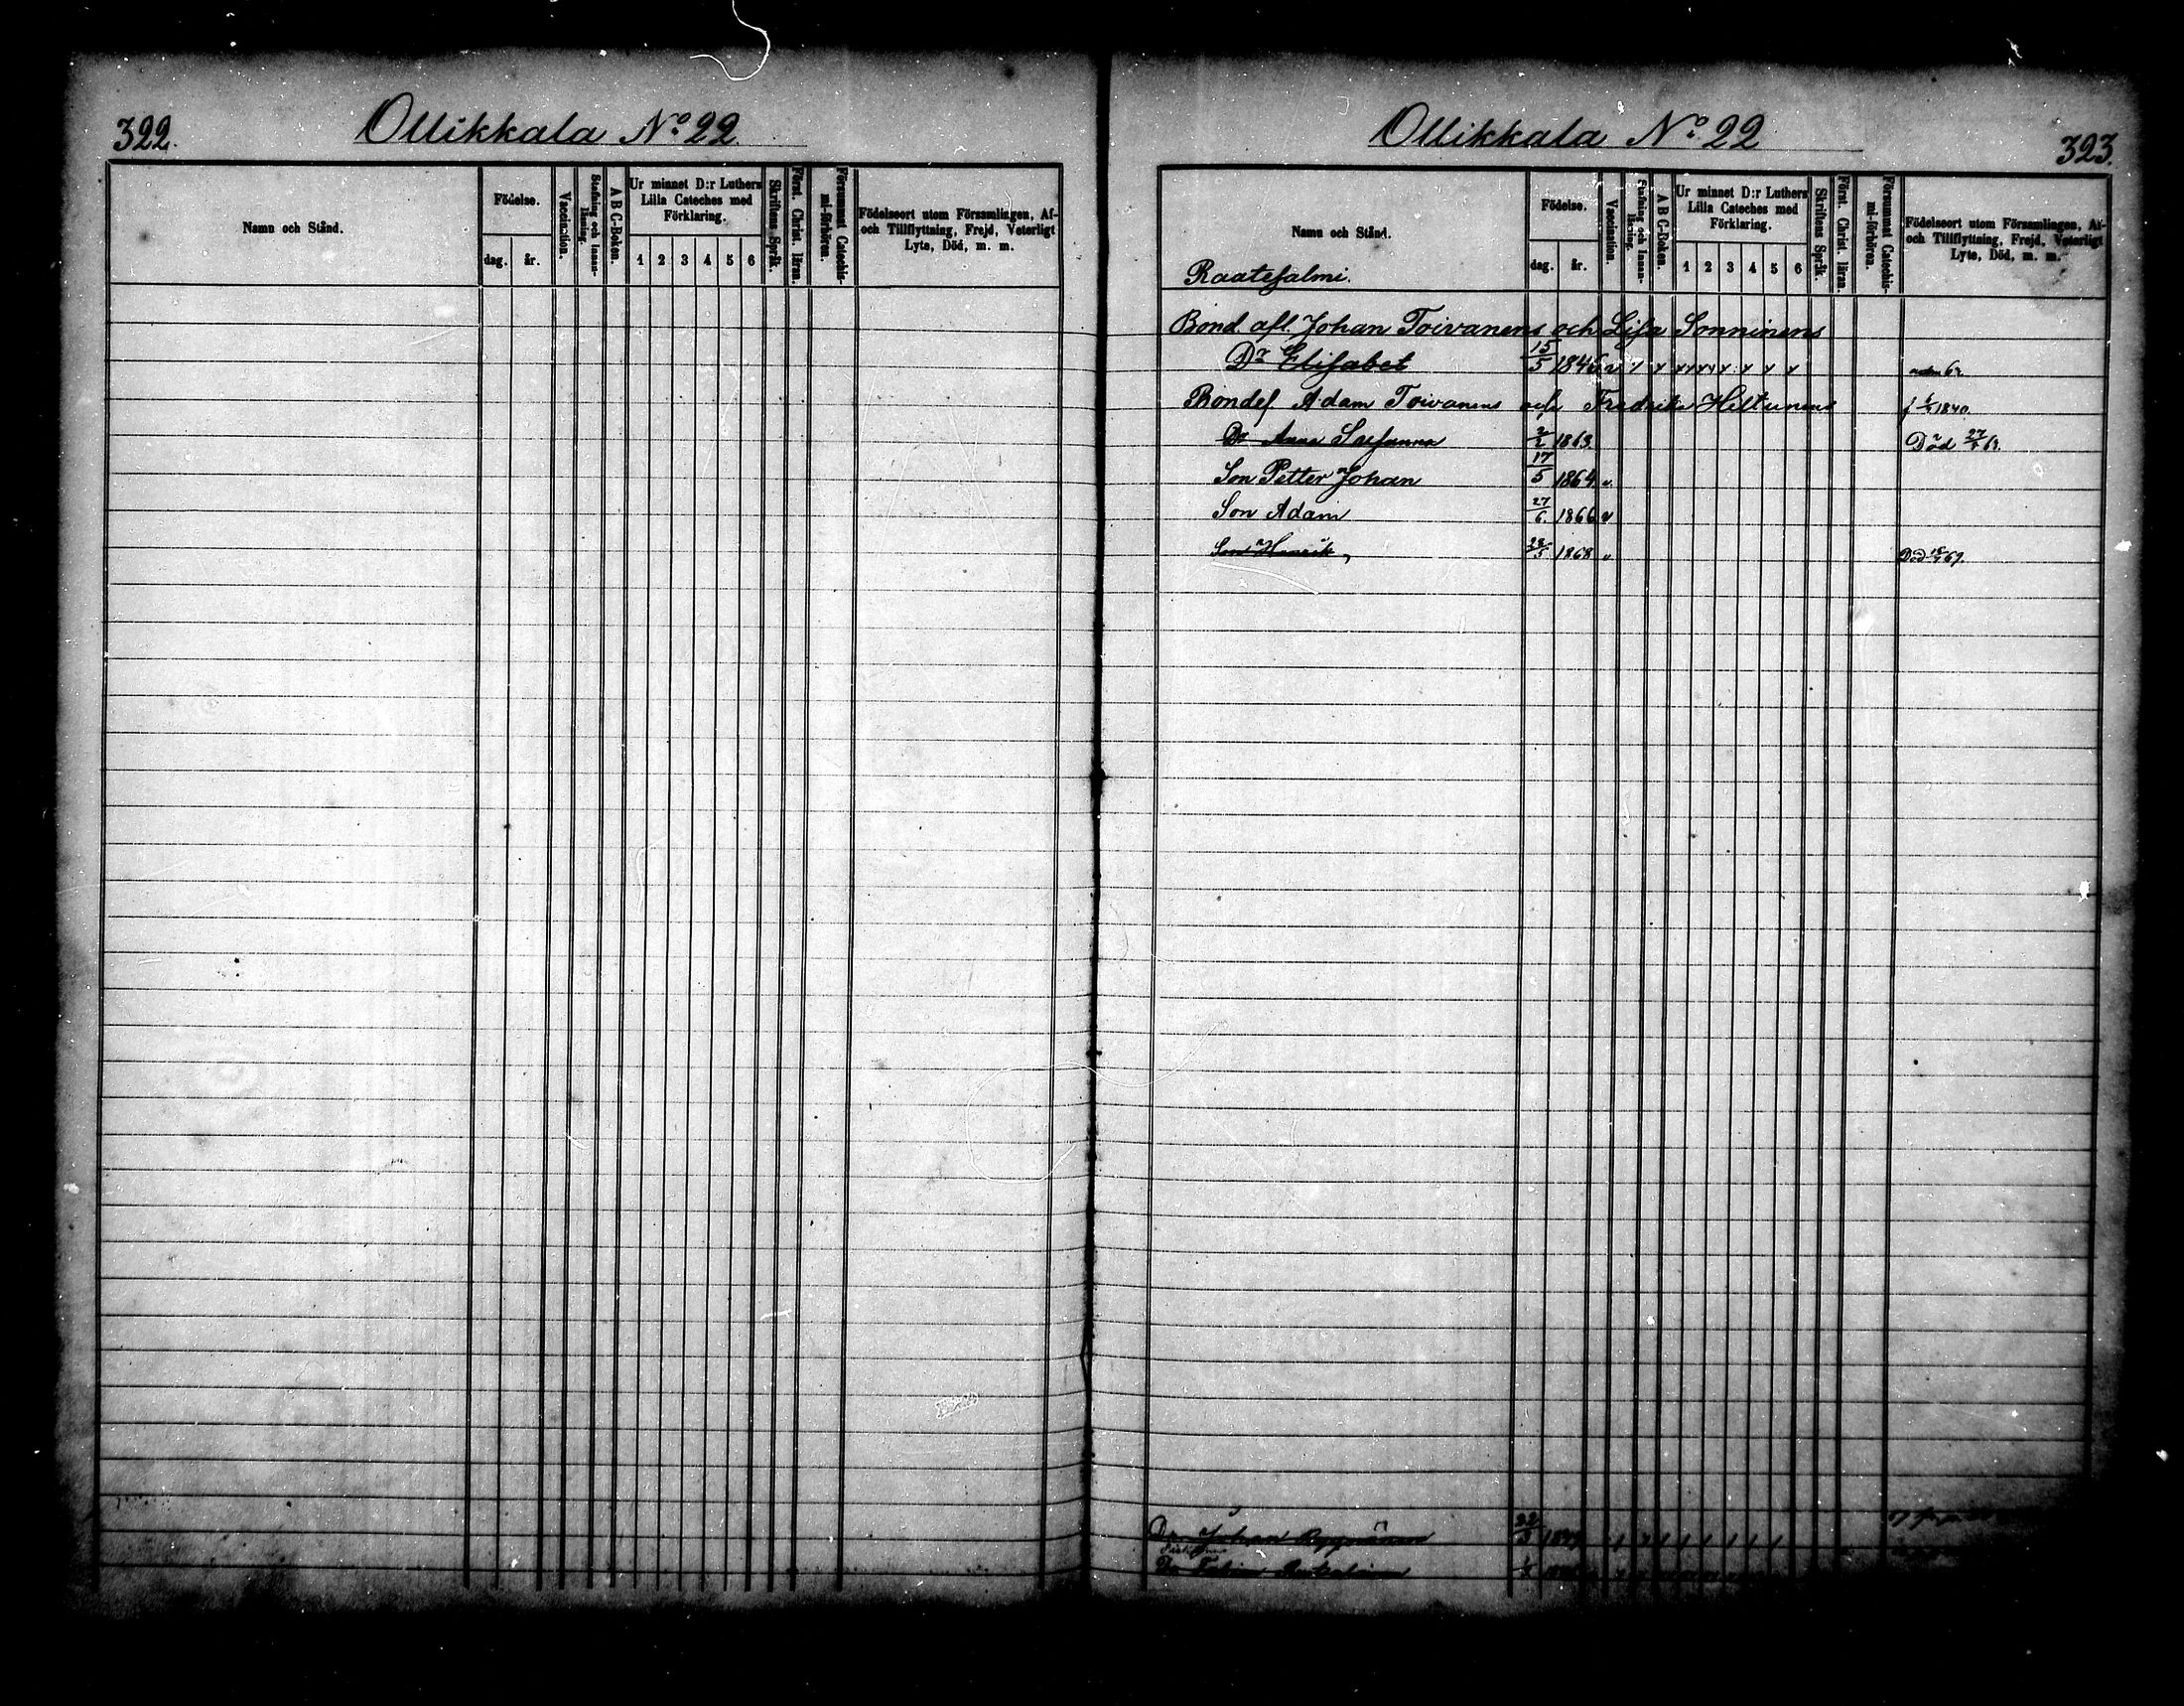 322.
Ollikkala No. 22.
Namn och Stånd.
Födelse.
dag. år.
Vaccination.
Stafning och Innan-läsning.
A B C-Boken.
Ur minnet D:r Luthers Lilla Cateches med Förklaring.
1 2 3 4 5 6
Skriftens Språk.
Först. Christ. läran.
Försummat Catechis-mi-förhören.
Födelseort utom Församlingen, Af- och Tillflyttning, Frejd, Veterligt Lyte, Död, m. m.
Ollikkala No. 22
323.
Namn och Stånd.
Raatesalmi.
Födelse.
dag. år.
Vaccination.
Stafning och Innan-läsning.
A B C-Boken.
Ur minnet D:r Luthers Lilla Cateches med Förklaring.
1 2 3 4 5 6
Skriftens Språk.
Först. Christ. läran.
Försummat Catechis-mi-förhören.
Födelseort utom Församlingen, Af- och Tillflyttning, Frejd, Veterligt Lyte, Död, m. m.
Bond. afl. Johan Toivanens och Lisa Sonninens
Dr Elisabet 15/5 1845
Bondes Adam Toivanens och Fredrika Hiltunens 1840.
Dr Anna Susanna 1863. Död
Son Petter Johan 17/5 1864
Son Adam 27/6 1866
Son Henrik 1868 Död 69.
Johan